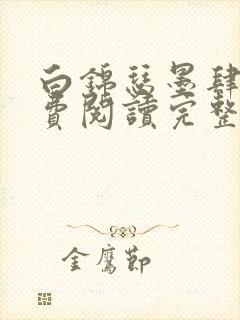 白錦瑟墨肆
費閱讀完整
金鷹節